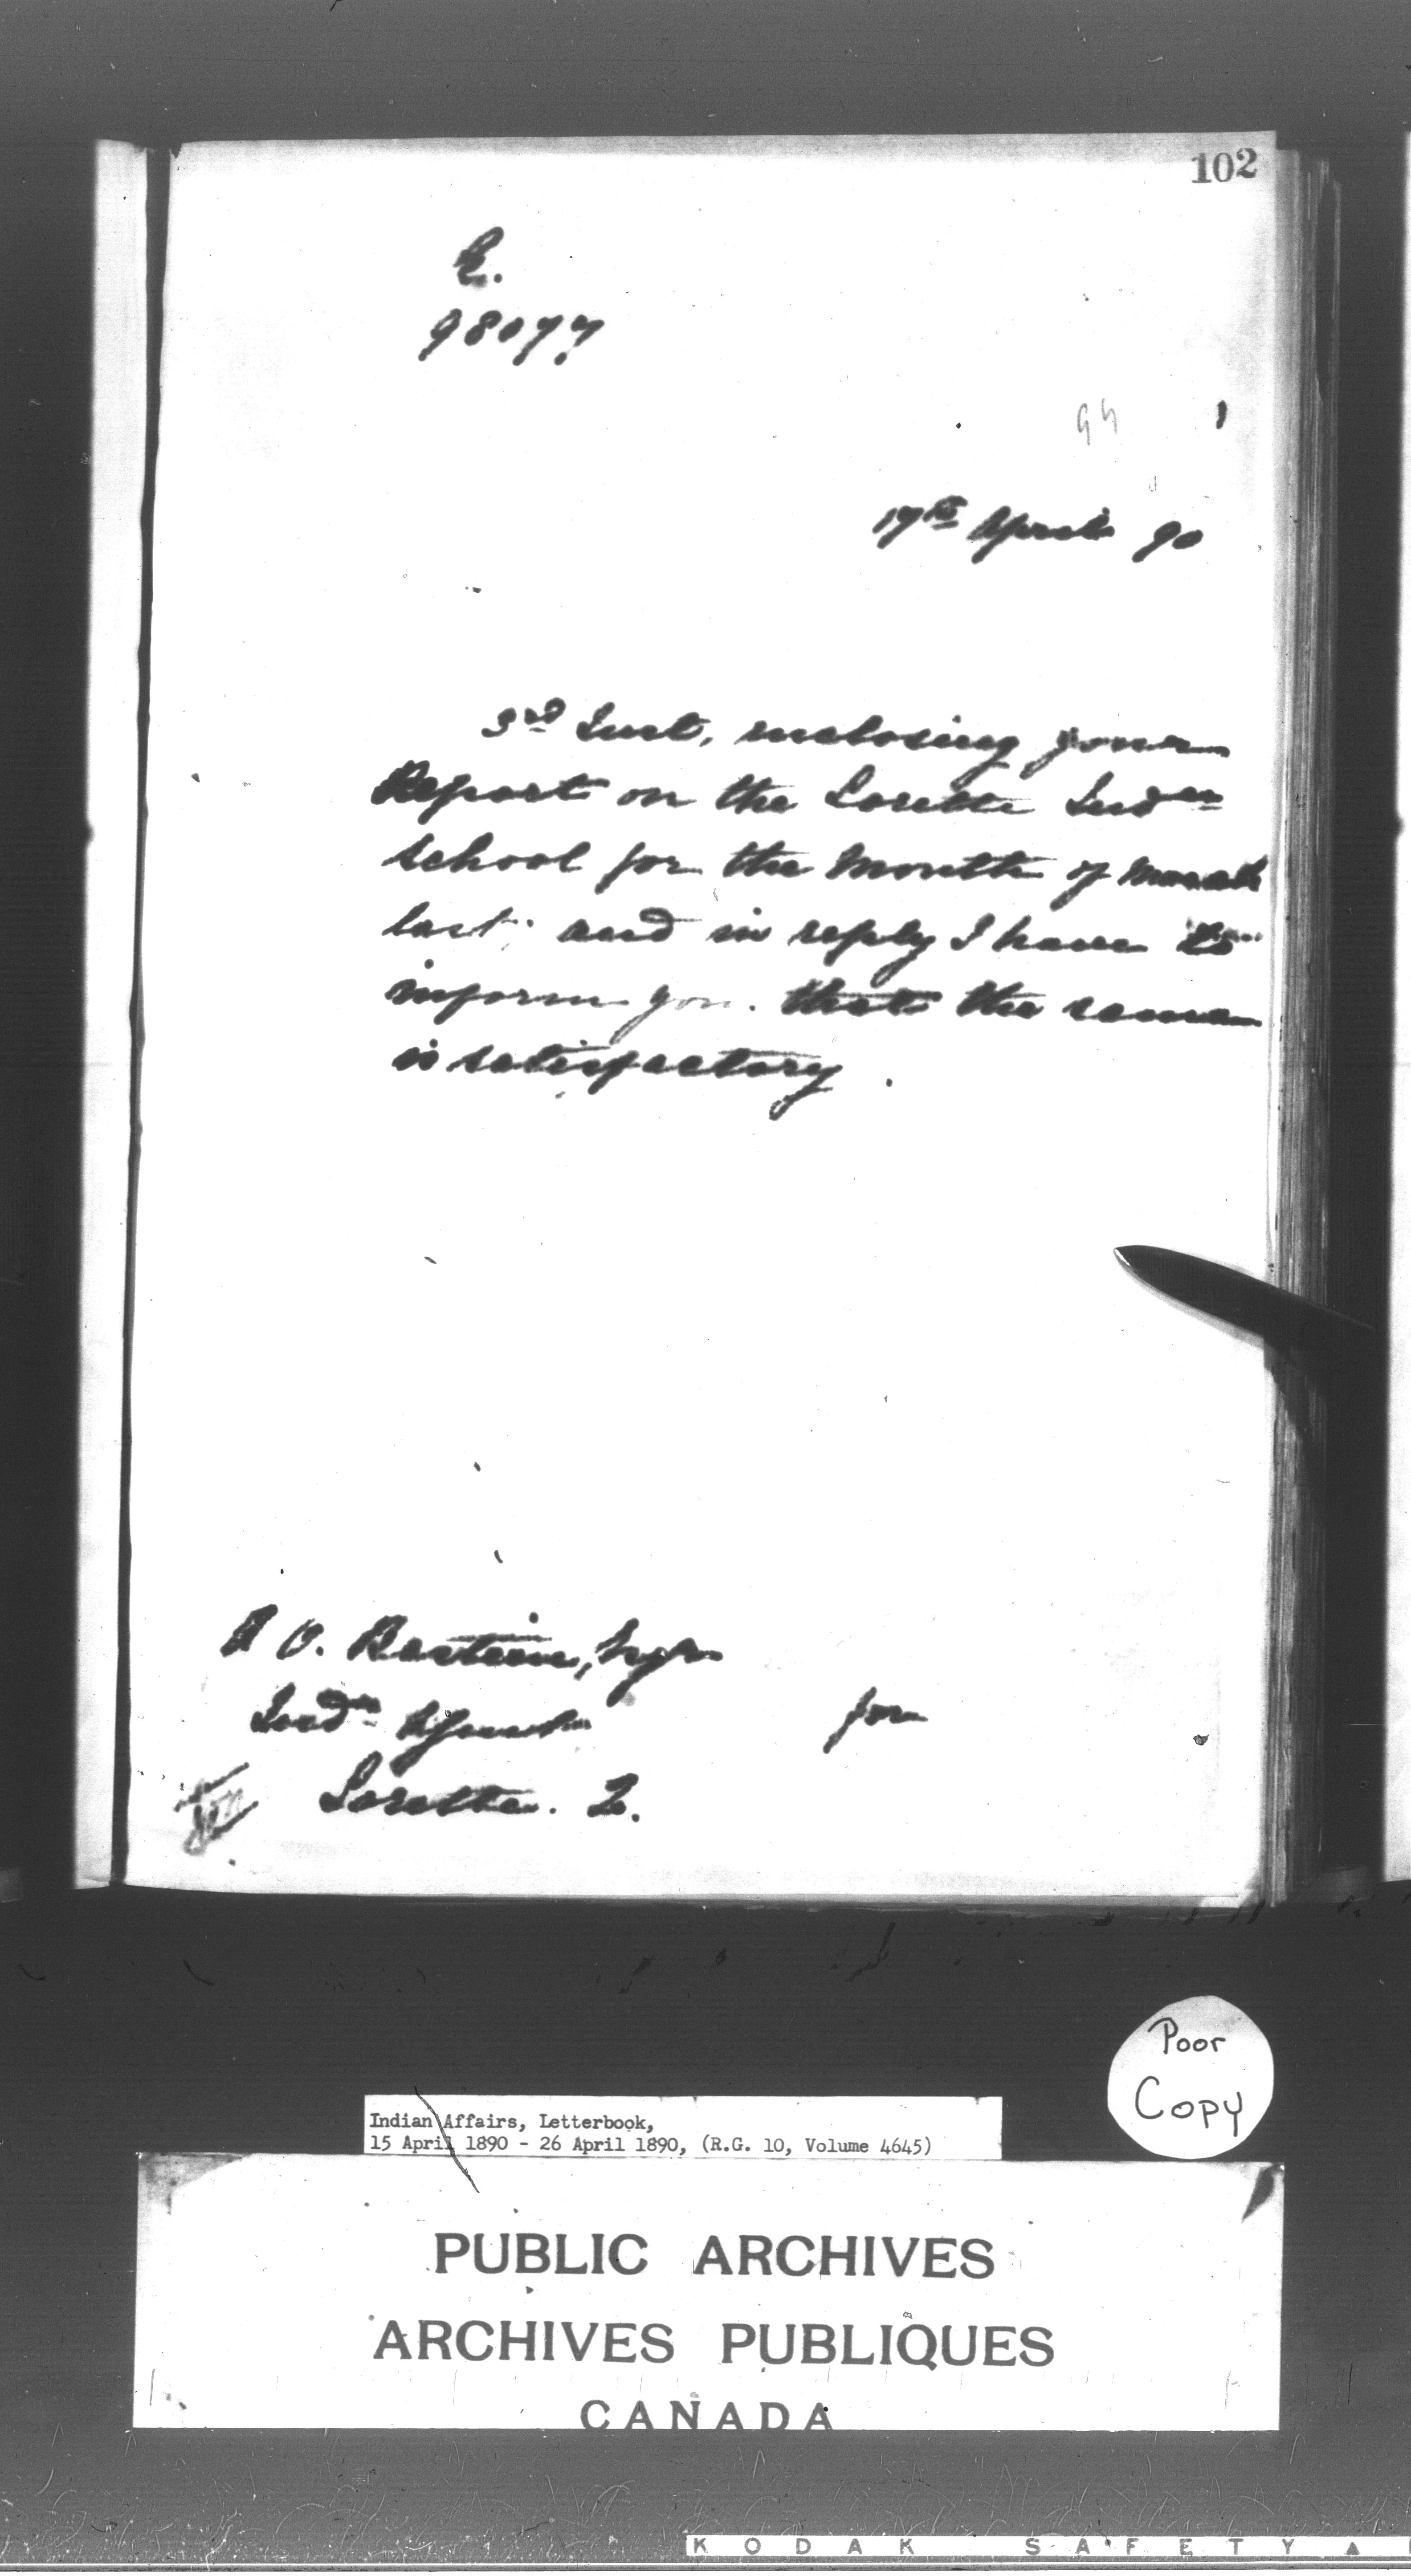 102
E.
98077
94
17th April 90
3rd Inst, enclosing your
Report on the Lorette Indn
School for the Month of March
last; and in reply I have to
inform you that the same
is satisfactory.
A O. Bastien, Esqr
Indn Agent
for
Lorette. Q.
Poor
Copy
Indian Affairs, Letterbook,
15 April 1890 - 26 April 1890, (R.G. 10, Volume 4645)
PUBLIC ARCHIVES
ARCHIVES PUBLIQUES
CANADA
KODAK SAFETY